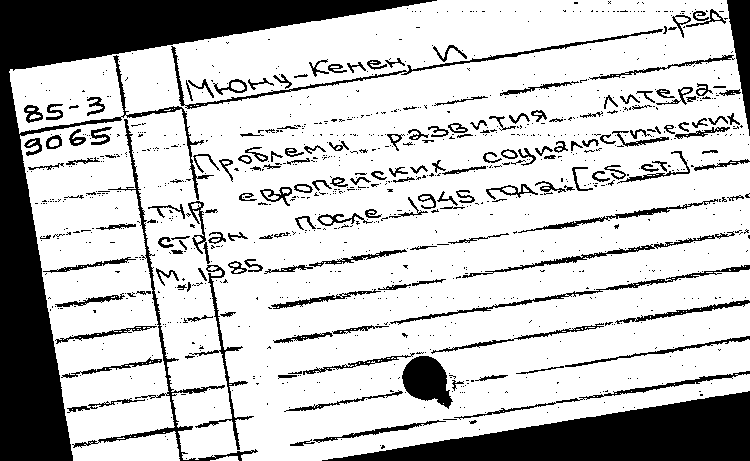 85-3
9065
Мюну-Кенен, И , ред
Проблемы развития литера-
тур европейских социалистических
стран после 1945 года: [сб. ст.] -
М., 1985